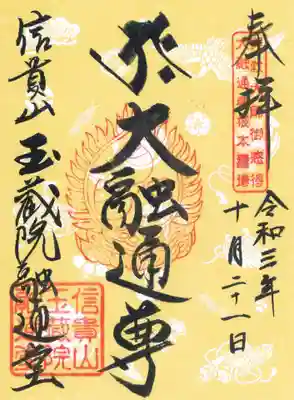 奉拝
令和三年
十月二十一日
大融通尊
信貴山
玉蔵院融通堂
信貴山
玉蔵院